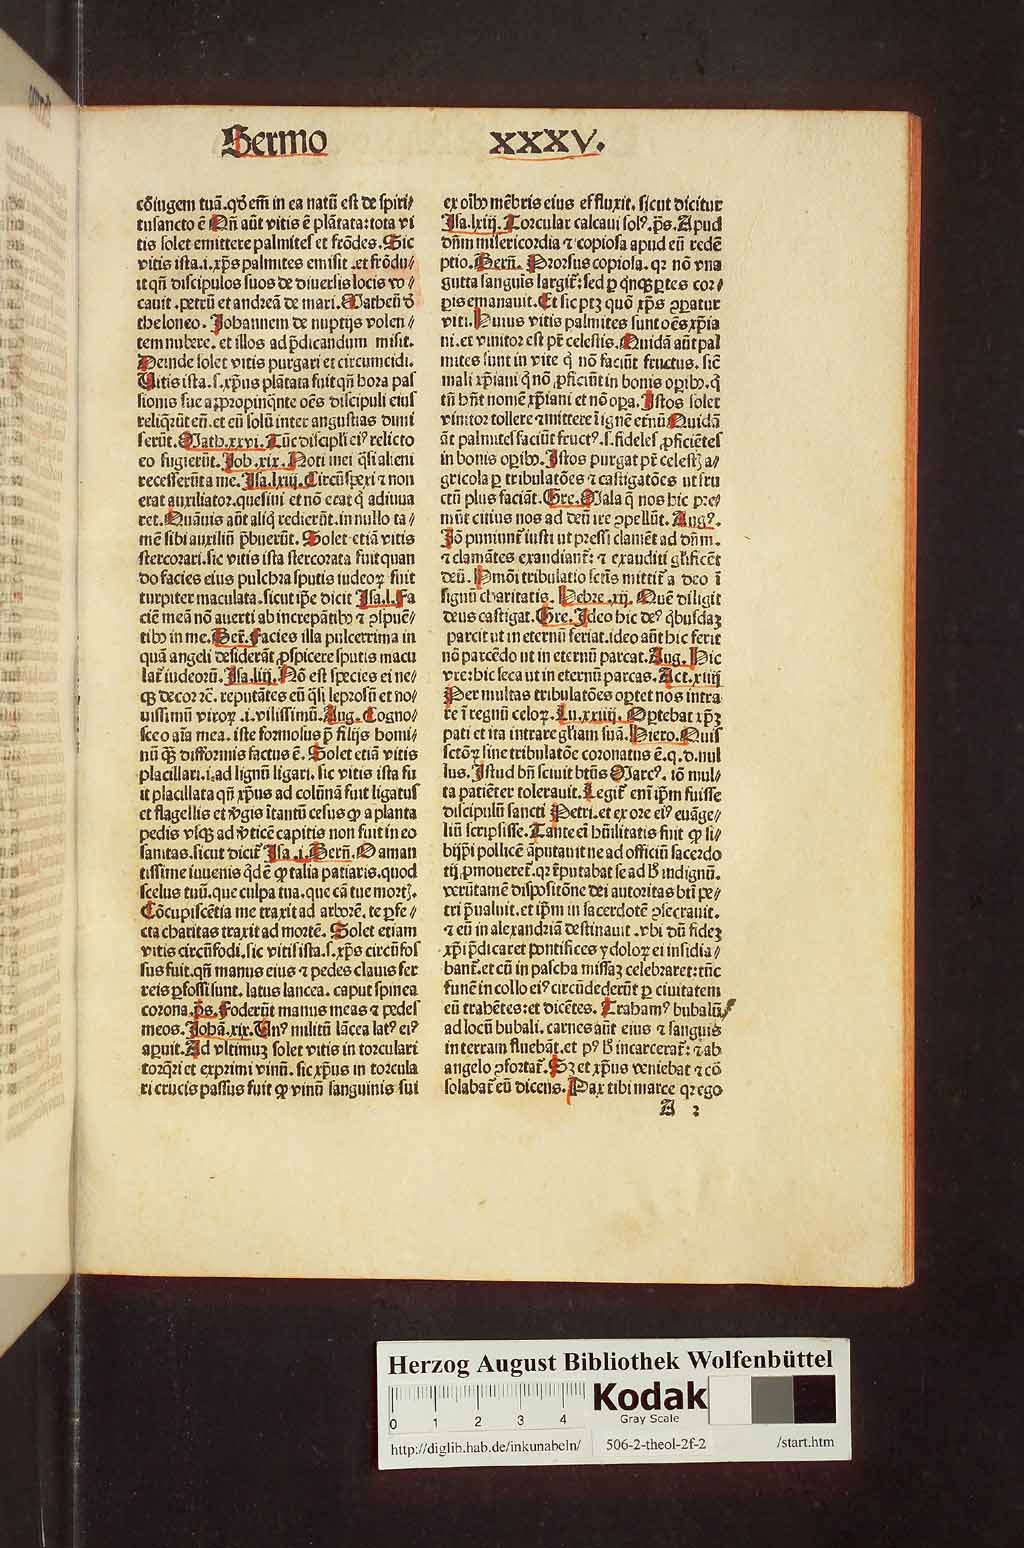 Sermo XXXV.
cōiugem tuā. qđ em̄ in ea natū est de spiri/
tusancto ē Qn̄ aūt vitis ē plātata: tota vi
tis solet emittere palmites et frōdes. Sic
vitis ista .i. xp̄s palmites emisit .et frōdu/
it qn̄ discipulos suos de diuersis locis vo/
cauit .petrū et andreā de mari. Matheū đ
theloneo. Johannem de nuptijs volen/
tem nubere. et illos ad p̄dicandum misit.
Deinde solet vitis purgari et circumcidi.
Vitis ista .s. xp̄us plātata fuit qn̄ hora pas
sionis sue appropinq̄nte oēs discipuli eius
reliq̄rūt eū. et eū solū inter angustias dimi
serūt. Math. xxvi. Tūc discipli eiꝰ relicto
eo fugierūt. Job. xix. Noti mei q̄si alieni
recesserūt a me. Isa. lxiij. Circūspexi ⁊ non
erat auxiliator. quesiui et nō erat q̇ adiuua
ret. Quāuis aūt aliq̇ redierūt. in nullo ta/
mē sibi auxiliū p̄buerūt. Solet etiā vitis
stercorari. sic vitis ista stercorata fuit quan
do facies eius pulchra sputis iudeoꝝ fuit
turpiter maculata. sicut ip̄e dicit Isa. l. Fa
ciē meā nō auerti ab increpātibꝰ ⁊ ꝯspuē/
tibꝰ in me. Ber̄. Facies illa pulcerrima in
quā angeli desiderāt ꝓspicere sputis macu
lat᷑ iudeorū. Isa. liij. Nō est species ei ne/
qꝫ decor ⁊c̄. reputātes eū q̄si leprosū et no/
uissimū viroꝝ .i. vilissimū. Aug. Cogno/
sce o aīa mea. iste formosus p̄ filijs homi/
nū qꝫ difformis factus ē. Solet etiā vitis
placillari. i. ad lignū ligari. sic vitis ista fu
it placillata qn̄ xp̄us ad colūnā fuit ligatus
et flagellis et v̄gis ītantū cesus ꝙ a planta
pedis vsqꝫ ad v̄ticē capitis non fuit in eo
sanitas. sicut dicit᷑ Isa .i. Bern̄. O aman
tissime iuuenis q̇d ē ꝙ talia patiaris. quod
scelus tuū. que culpa tua. que cā tue mortꝭ.
Cōcupiscētia me traxit ad arborē. te ꝑfe/
cta charitas traxit ad mortē. Solet etiam
vitis circūfodi. sic vitis ista .s. xp̄s circūfos
sus fuit. qn̄ manus eius ⁊ pedes clauis fer
reis ꝑfossi sunt. latus lancea. caput spinea
corona. ps̄. Foderūt manus meas ⁊ pedes
meos. Johā. xix. Unꝰ militū lācea latꝰ eiꝰ
aꝑuit. Ad vltimuꝫ solet vitis in torculari
torq̄ri et exprimi vinū. sic xp̄us in torcula
ri crucis passus fuit ꝙ vinū sanguinis sui
ex oībꝰ mēbris eius effluxit. sicut dicitur
Isa. lxiij. Torcular calcaui solꝰ. ps̄. Apud
dn̄m misericordia ⁊ copiosa apud eū redē
ptio. Bern̄. Prorsus copiosa. qꝛ nō vna
gutta sanguīs largit᷑: sed ꝑ q̄nqꝫ ꝑtes cor/
ꝑis emanauit. Et sic ptꝫ quō xp̄s ꝯꝑatur
viti. Huius vitis palmites sunt oēs xp̄ia
ni. et vinitor est pr̄ celestis. Quidā aūt pal
mites sunt in vite q̇ nō faciūt fructus. sic̄
mali xp̄iani q̇ nō ꝓficiūt in bonis oꝑibꝰ. q̇
tn̄ hn̄t nomē xp̄iani et nō oꝑa. Istos solet
vinitor tollere ⁊ mittere ī ignē et̄nū Quidā
āt palmites faciūt fructꝰ .s. fideles ꝓficiētes
in bonis oꝑibꝰ. Istos purgat pr̄ celestꝭ a/
gricola ꝑ tribulatōes ⁊ castigatōes ut fru
ctū plus faciāt. Gre. Mala q̄ nos hic pre/
mūt citius nos ad deū ire ꝯpellūt. Augꝰ.
Iō puniunt᷑ iusti ut pressi clamēt ad dn̄m.
⁊ clamātes exaudiant᷑: ⁊ exauditi gl̄ificēt
deū. Pmōi tribulatio sctīs mittit᷑ a deo ī
signū charitatis. Hebre. xij. Quē diligit
deus castigat. Gre. Ideo hic deꝰ q̇busdaꝫ
parcit ut in eternū feriat. ideo aūt hic ferit
nō parcēdo ut in eternū parcat. Aug. Hic
vre: hic seca ut in eternū parcas. Act. xiiij
Per multas tribulatōes oꝑtet nos intra
re ī regnū celoꝝ. Lu. xxiiij. Oꝑtebat xp̄ꝫ
pati et ita intrare gl̄iam suā. Hiero. Quis
sctōꝝ sine tribulatōe coronatus ē. q. d. nul
lus. Istud bn̄ sciuit btūs Marcꝰ. iō mul/
ta patiēter tolerauit. Legit᷑ enī ip̄m fuisse
discipulū sancti Petri. et ex ore eiꝰ euāge/
liū scripsisse. Tante eī hūilitatis fuit ꝙ si/
bijp̄i pollicē āputauit ne ad officiū sacerdo
tij ꝓmoueret᷑. qꝛ r̄putabat se ad ħ indignū.
verūtamē dispositōne dei autoritas btī pe/
tri p̄ualuit. et ip̄m in sacerdotē ꝯsecrauit.
⁊ eū in alexandriā destinauit .vbi dū fideꝫ
xp̄i p̄dicaret pontifices ydoloꝝ ei insidia/
bant᷑. et cū in pascha missaꝫ celebraret: tūc
funē in collo eiꝰ circūdederūt ꝑ ciuitatem
eū trahētes: et dicētes. Trahamꝰ bubalū
ad locū bubali. carnes aūt eius ⁊ sanguis
in terram fluebāt. et pꝰ ħ incarcerat᷑: ⁊ ab
angelo ꝯfortat᷑. Sꝫ et xp̄us veniebat ⁊ cō
solabat᷑ eū dicens. Pax tibi marce qꝛ ego
A 2
Herzog August Bibliothek Wolfenbüttel
0 1 2 3 4
Kodak
Gray Scale
http://diglib.hab.de/inkunabeln/ 506-2-theol-2f-2 /start.htm